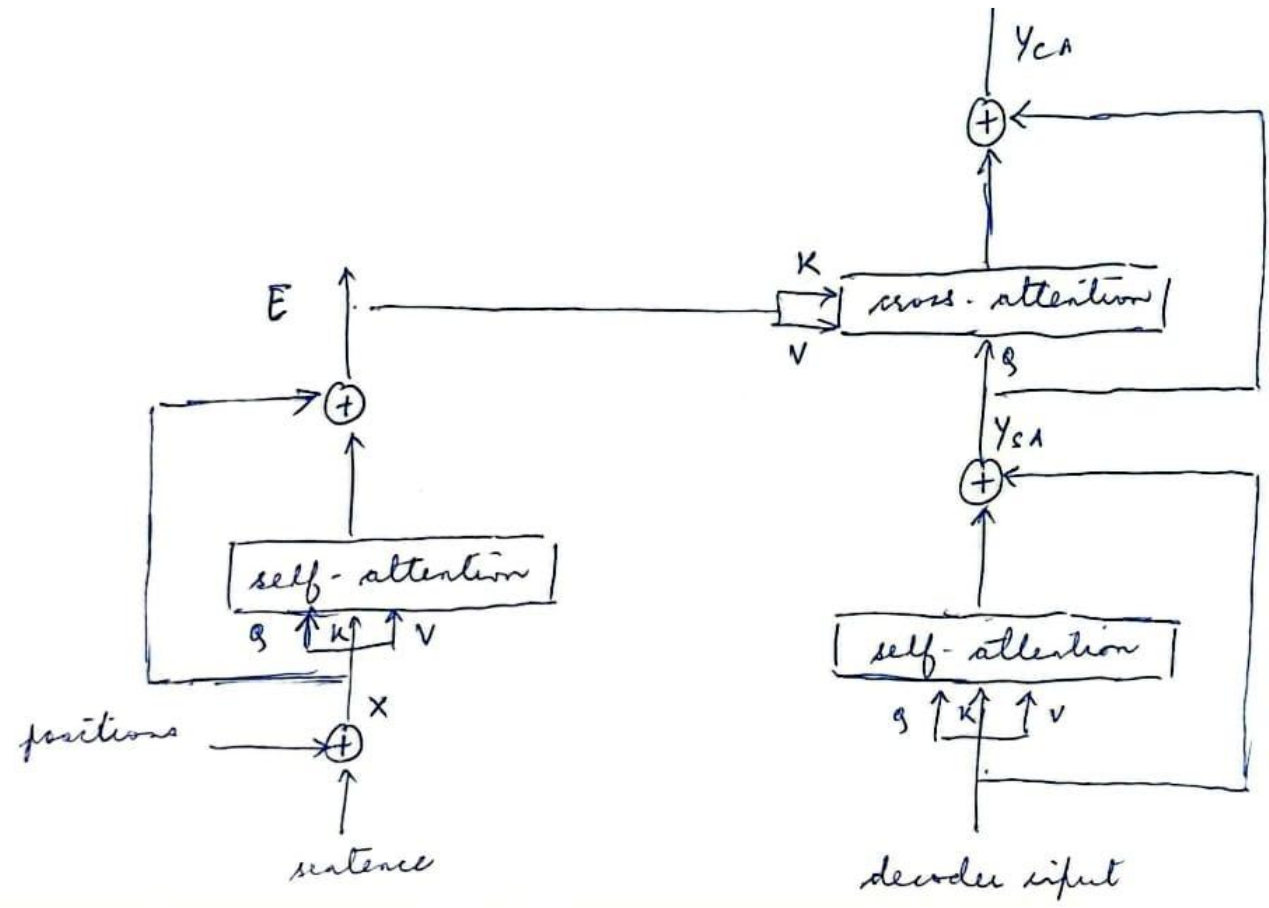 Y_CA
K
E
cross-attention
V
Q
Y_SA
self-attention
self-attention
Q K V
Q K V
X
positions
sentence
decoder input